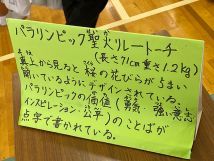 パラリンピック聖火リレートーチ
(長さ71cm 重さ1.2kg)
真上から見ると桜の花びらが5まい
開いているようにデザインされている。
パラリンピックの価値(勇気・強い意志
インスピレーション・公平)のことばが
点字で書かれている。